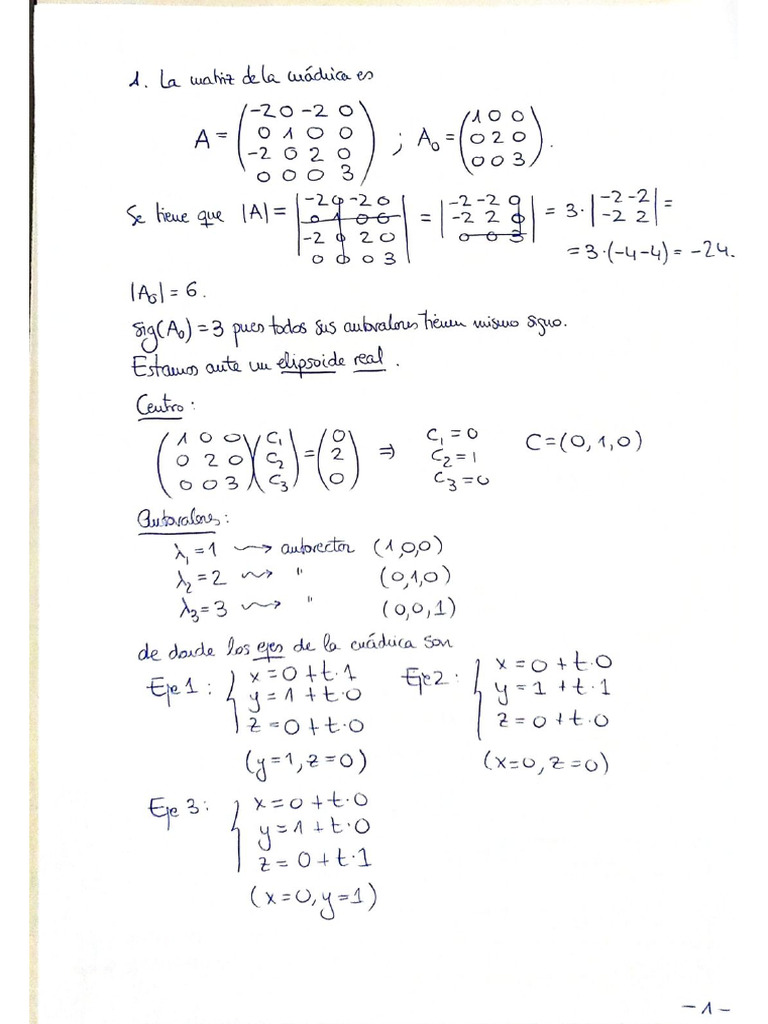 1. La matriz de la cuádrica es
A = (-2 0 -2 0
0 1 0 0
-2 0 2 0
0 0 0 3) ; A₀ = (1 0 0
0 2 0
0 0 3).
Se tiene que |A| = |-2 0 -2 0
0 1 0 0
-2 0 2 0
0 0 0 3| = |-2 -2 0
-2 2 0
0 0 3| = 3·|-2 -2
-2 2| =
= 3·(-4-4) = -24.
|A₀| = 6.
sig(A₀) = 3 pues todos sus autovalores tienen mismo signo.
Estamos ante un elipsoide real.
Centro:
(1 0 0
0 2 0
0 0 3)(C₁
C₂
C₃) = (0
2
0) ⇒ C₁ = 0
C₂ = 1
C₃ = 0
C = (0, 1, 0)
Autovalores:
λ₁ = 1 ⇝ autovector (1,0,0)
λ₂ = 2 ⇝ " (0,1,0)
λ₃ = 3 ⇝ " (0,0,1)
de donde los ejes de la cuádrica son
Eje 1: { x = 0 + t·1
y = 1 + t·0
z = 0 + t·0
(y = 1, z = 0)
Eje 2: { x = 0 + t·0
y = 1 + t·1
z = 0 + t·0
(x = 0, z = 0)
Eje 3: { x = 0 + t·0
y = 1 + t·0
z = 0 + t·1
(x = 0, y = 1)
- 1 -